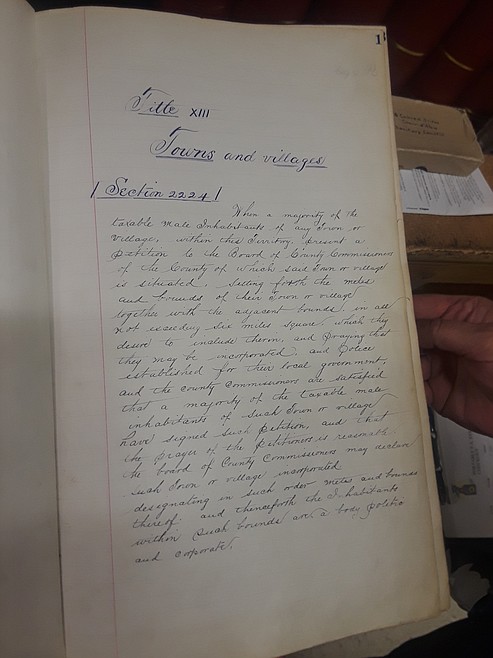 1
Title XIII
Towns and villages
Section 2224
When a majority of the
taxable male Inhabitants of any Town or
village, within this Territory, present a
petition to the Board of County Commissioners
of the County of which said Town or village
is situated, setting forth the metes
and bounds of their Town or village
together with the adjacent bounds, in all
not exceeding six miles square, which they
desire to include therein, and praying that
they may be incorporated, and police
established for their local government,
and the county Commissioners are satisfied
that a majority of the taxable male
inhabitants of such Town or village
have signed such petition, and that
the prayer of the petitioners is reasonable
the board of County Commissioners may declare
such Town or village incorporated
designating in such order metes and bounds
thereof and thenceforth the Inhabitants
within such bounds are a body politic
and corporate.